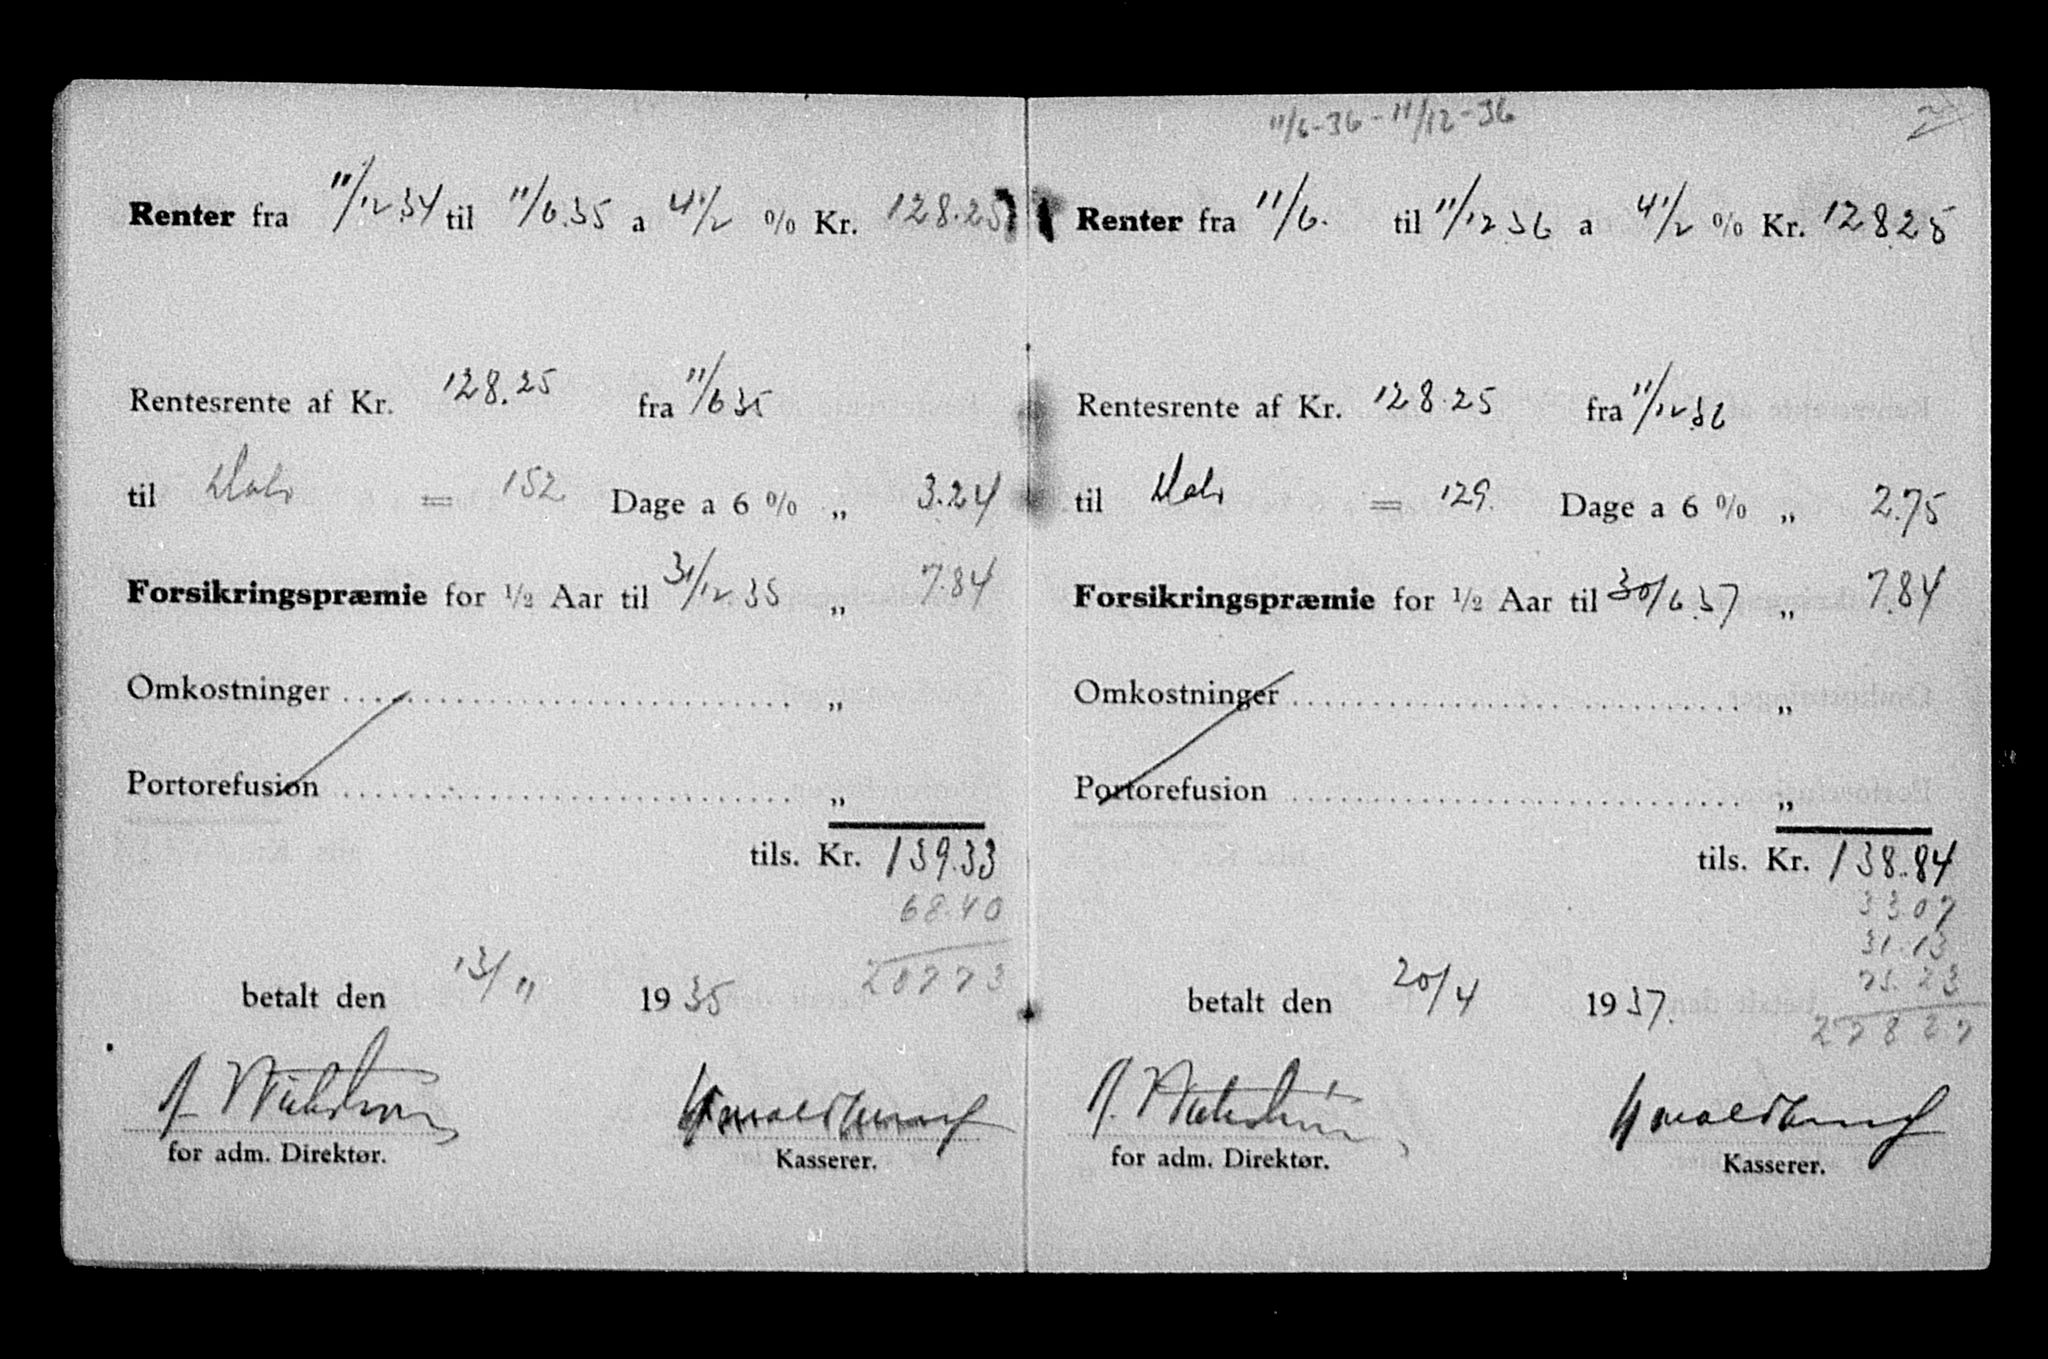 Renter fra 11/12 34 til 11/6.35 a 4 1/2 % Kr. 128.25
Rentesrente af Kr. 128.25 fra 11/6 35
til = 152 Dage a 6 % „ 3.24
Forsikringspræmie for ½ Aar til 31/12 35 „ 7.84
Omkostninger „
Portorefusion „
tils. Kr. 139.33
68.40
207 73
betalt den 13/11 1935
for adm. Direktør. Kasserer.
11/6-36 - 11/12-36
Renter fra 11/6. til 11/12 36 a 4 1/2 % Kr. 128 25
Rentesrente af Kr. 128.25 fra 11/12 36
til = 129. Dage a 6 % „ 2.75
Forsikringspræmie for ½ Aar til 30/6 37 „ 7.84
Omkostninger „
Portorefusion „
tils. Kr. 138.84
33 07
31.13
75.23
278 27
betalt den 20/4 1937.
for adm. Direktør. Kasserer.